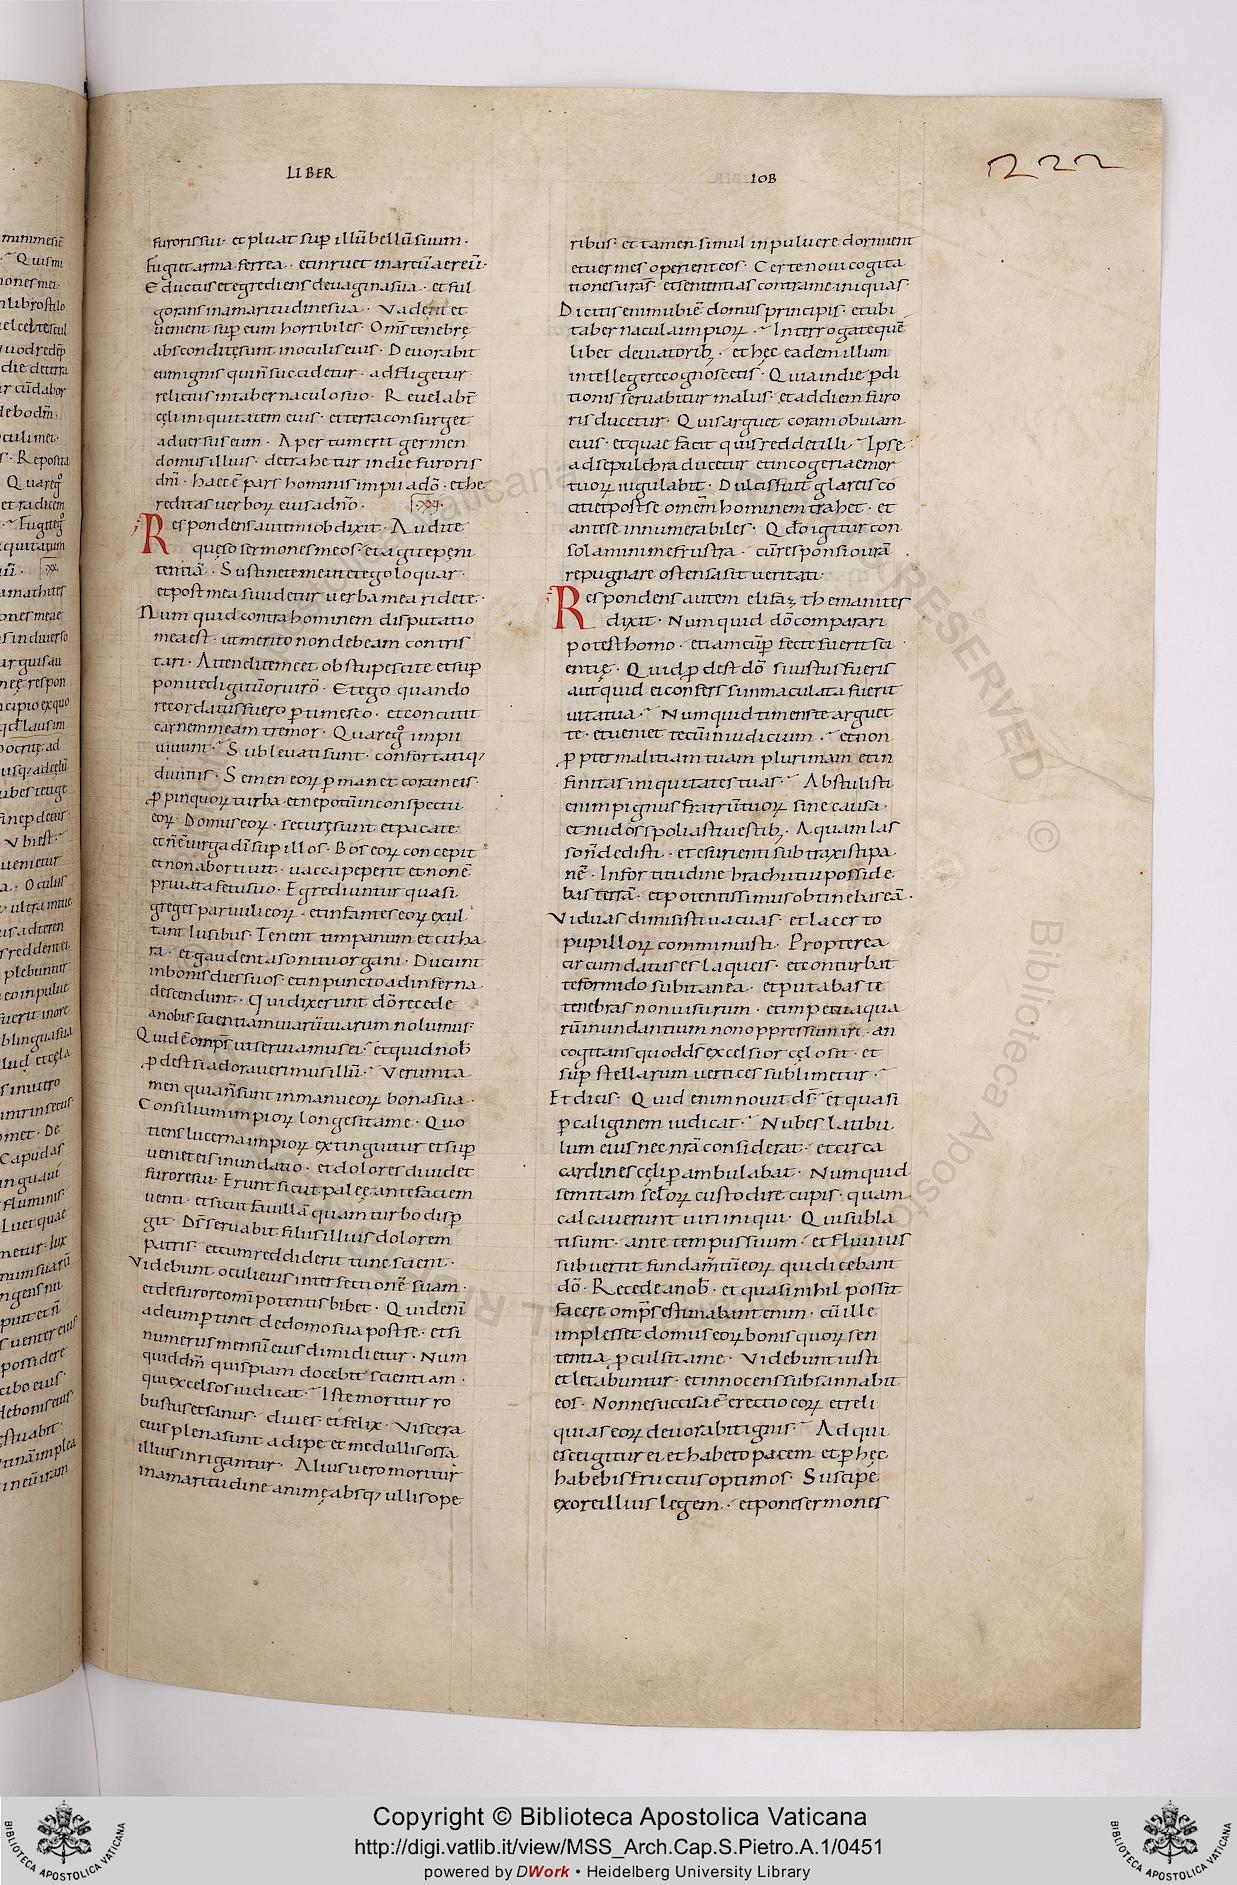 LIBER
IOB
222
furoris sui· et pluat sup̄ illū bellū suum·
Fugiet arma ferrea· et inruet in arcū aereū·
Eductus et egrediens de vagina sua· et ful
gorans in amaritudine sua· Vadent et
uenient sup̄ eum horribiles· Om̄s tenebrę
absconditę sunt in oculis eius· Deuorabit
eum ignis qui n̄ succidetur· adfligetur
relictus in tabernaculo suo· Reuelabt̄
cęli iniquitatem eius· et terra consurget
aduersus eum· Apertum erit germen
domus illius· detrahetur in die furoris
dn̄i· haec ē pars hominis impii a dō· et he
reditas uerborꝝ eius a dn̄o· XXI·
Respondens autem iob dixit· Audite
quęso sermones meos· et agite pęni
tentiā· Sustinete me in et ego loquar·
et post mea si uidetur uerba mea ridete·
Numquid contra hominem disputatio
mea est· ut merito non debeam contris
tari· Attendite me et obstupescite et sup̄
ponite digitū ori uro· Et ego quando
recordatus fuero ꝑtimesco· et concutit
carnem meam tremor· Quare gº impii
uiuunt· Subleuati sunt· confortatiq;
diuitiis· Semen eorꝝ ꝑmanet coram eis·
ꝓpinquorꝝ turba· et nepotū in conspectu
eorꝝ· Domus eorꝝ· securę sunt et pacate·
et n̄ ē uirga dī sup̄ illos· Bos eorꝝ concepit
et non abortiuit· uacca peperit et non ē
priuata fetu suo· Egrediuntur quasi
greges paruuli eorꝝ· et infantes eorꝝ exul
tant lusibus· Tenent timpanum et citha
ra· et gaudent ad sonitu organi· Ducunt
in bonis dies suos· et in puncto ad inferna
descendunt· Qui dixerunt dō recede
a nobis· scientiam uiarū tuarum nolumus·
Quid ē omp̄s ut seruiamus ei· et quid nob̄
ꝓdest si adorauerimus illū· Verumta
men quia n̄ sunt in manu eorꝝ bona sua·
Consilium impiorꝝ longe sit a me· Quo
tiens lucerna impiorꝝ extinguitur et sup̄
ueniet eis inundatio· et dolores diuidet
furore sui· Erunt sicut palęę ante faciem
uenti· et sicut fauillā quam turbo disp̄
git· Ds̄ seruabit filiis illius dolorem
patris· et cum reddiderit tunc sciet·
Videbunt oculi eius interfectionē suam·
et de furore omīpotentis bibet· Quid enī
ad eum ꝑtinet de domo sua post se· et si
numerus mensiū eius dimidietur· Num
quid dm̄ quispiam docebit scientiam·
qui excelsos iudicat· Iste moritur ro
bustus et sanus· diues et felix· Viscera
eius plena sunt adipe et medullis ossa
illius inrigantur· Alius uero moritur
in amaritudine animę absq; ullis ope
ribus· et tamen simul in puluere dormient
et uermes operient eos· Certe noui cogita
tiones uras̄· et sententias contra me iniquas·
Dicitis enim ubi ē domus principis· et ubi
tabernacula impiorꝝ· Interrogate quē
libet de uiatorib;· et hęc eadem illum
intellegere cognoscetis· Quia in die ꝑdi
tionis seruabitur malus· et ad diem furo
ris ducetur· Quis arguet coram eo uiam
eius· et quae facit quis reddet illi· Ipse
ad sepulchra ducetur et in cogerie mor
tuorꝝ uigilabit· Dulcis fuit glareis co
citi et post se omēm hominem trahet· et
ante se innumerabiles· Qd̄o igitur con
solamini me frustra· cū responsio urā
repugnare ostensa sit ueritati·
Respondens autem elifaz themanites
dixit· Numquid dō comparari
potest homo· etiam cū ꝑfecte fuerit sci
entię· Quid ꝓdest dō si iustus fueris
aut quid ei confers si inmaculata fuerit
uita tua· Numquid timens te arguet
te· et ueniet tecū in iudicium· et non
ꝓpter malitiam tuam plurimam et in
finitas iniquitates tuas· Abstulisti
enim pignus fratrū tuorꝝ sine causa·
et nudos spoliasti uestib;· Aquam las
so n̄ dedisti· et esurienti subtraxisti pa
nē· In fortitudine brachii tui posside
bas terrā· et potentissimus obtinebas eā·
Viduas dimisisti uacuas· et lacerto
pupillorꝝ comminuisti· Propterea
circumdatus es laqueis· et conturbat
te formido subitanea· et putabas te
tenebras non uisurum· et impetu aqua
rū inundantium non oppressum iri· an
cogitans quod ds̄ excelsior cęlo sit· et
sup̄ stellarum uertices sublimetur·
Et dicis· Quid enim nouit ds̄· et quasi
ꝑ caliginem iudicat· Nubes latibu
lum eius nec nrā considerat· et circa
cardines cęli ꝑambulabat· Numquid
semitam sclorꝝ custodire cupis· quam
calcauerunt uiri iniqui· Qui subla
ti sunt· ante tempus suum· et fluuius
subuertit fundam̄tū eorꝝ qui dicebant
dō· Recede a nob̄· et quasi nihil possit
facere omp̄s estimabant enim· cū ille
implesset domus eorꝝ bonis quorꝝ sen
tentia ꝓcul sit a me· Videbunt iusti
et letabuntur· et innocens subsannabit
eos· Nonne succisa ē erectio eorꝝ et reli
quias eorꝝ deuorabit ignis· Adqui
esce igitur ei et habeto pacem et ꝑ hęc
habebis fructus optimos· Suscipe
ex ore illius legem· et pone sermones
Copyright © Biblioteca Apostolica Vaticana
http://digi.vatlib.it/view/MSS_Arch.Cap.S.Pietro.A.1/0451
powered by DWork • Heidelberg University Library